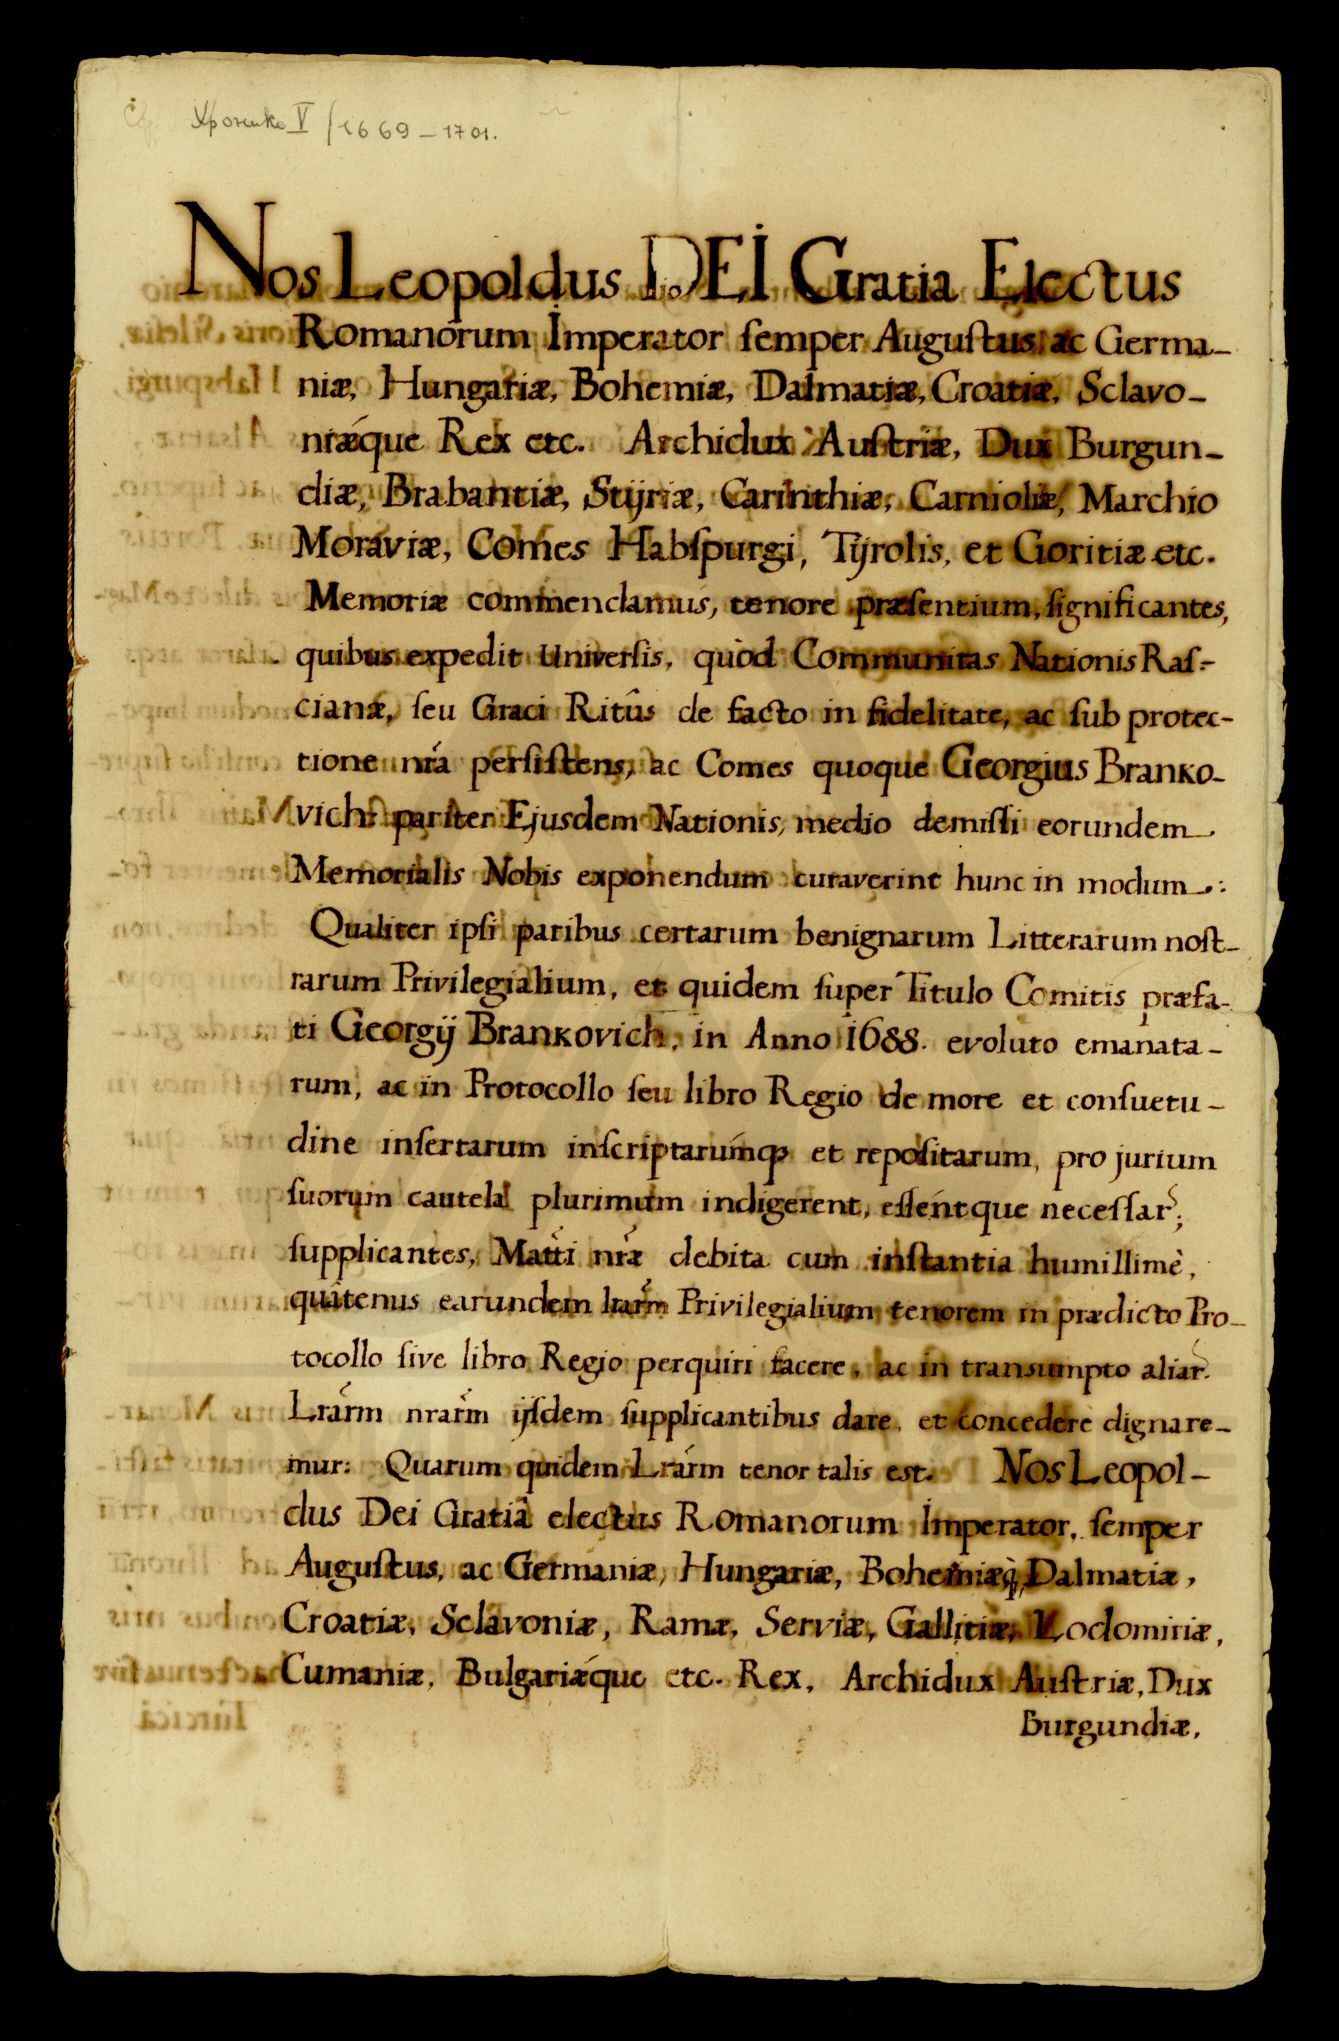 Хроника V / 1669 – 1701.
Nos Leopoldus DEI Gratia Electus
Romanôrum Imperator ſemper Auguſtus, ac Germa-
niæ, Hungariæ, Bohemiæ, Dalmatiæ, Croatiæ, Sclavo-
niǽque Rex etc. Archidux Auſtriæ, Dux Burgun-
diæ, Brabantiæ, Stÿriæ, Carinthiæ, Carnioliæ, Marchio
Moraviæ, Comes Habſpurgi, Tÿrolis, et Goritiæ etc.
Memoriæ commendamus, tenore præſentium, ſignificantes,
quibus expedit Univerſis, quòd Communitas Nationis Raſ-
cianæ, ſeu Græci Ritûs de facto in fidelitate, ac ſub protec-
tione nrá perſiſtens, ac Comes quoque Georgius Branko-
vich pariter Ejusdem Nationis, medio demiſſi eorundem
Memorialis Nobis exponendum curaverint hunc in modum:
Qualiter ipſi paribus certarum benignarum Litterarum noſt-
rarum Privilegialium, et quidem ſuper Titulo Comitis præfa-
ti Georgÿ Brankovich, in Anno 1688. evoluto emanata-
rum, ac in Protocollo ſeu libro Regio de more et conſuetu-
dine inſertarum inſcriptarúmq; et repoſitarum, pro jurium
ſuorum cautela plurimum indigerent, eſſéntque neceſſar;
ſupplicantes, Matti nræ debita cum inſtantia humillimè,
quâtenus earundem lrarm Privilegialium tenorem in prædicto Pro-
tocollo ſive libro Regio perquiri facere, ac in transumpto aliar.
Lrarm nrarm ÿſdem ſupplicantibus dare, et concedere dignare-
mur: Quarum quidem Lrarm tenor talis est. Nos Leopol-
dus Dei Gratiâ electus Romanorum Imperator, ſemper
Auguſtus, ac Germaniæ, Hungariæ, Bohemiæq́, Dalmatiæ,
Croatiæ, Sclavoniæ, Ramæ, Serviæ, Gallitiæ, Lodomiriæ,
Cumaniæ, Bulgariǽque etc. Rex, Archidux Auſtriæ, Dux
Burgundiæ,